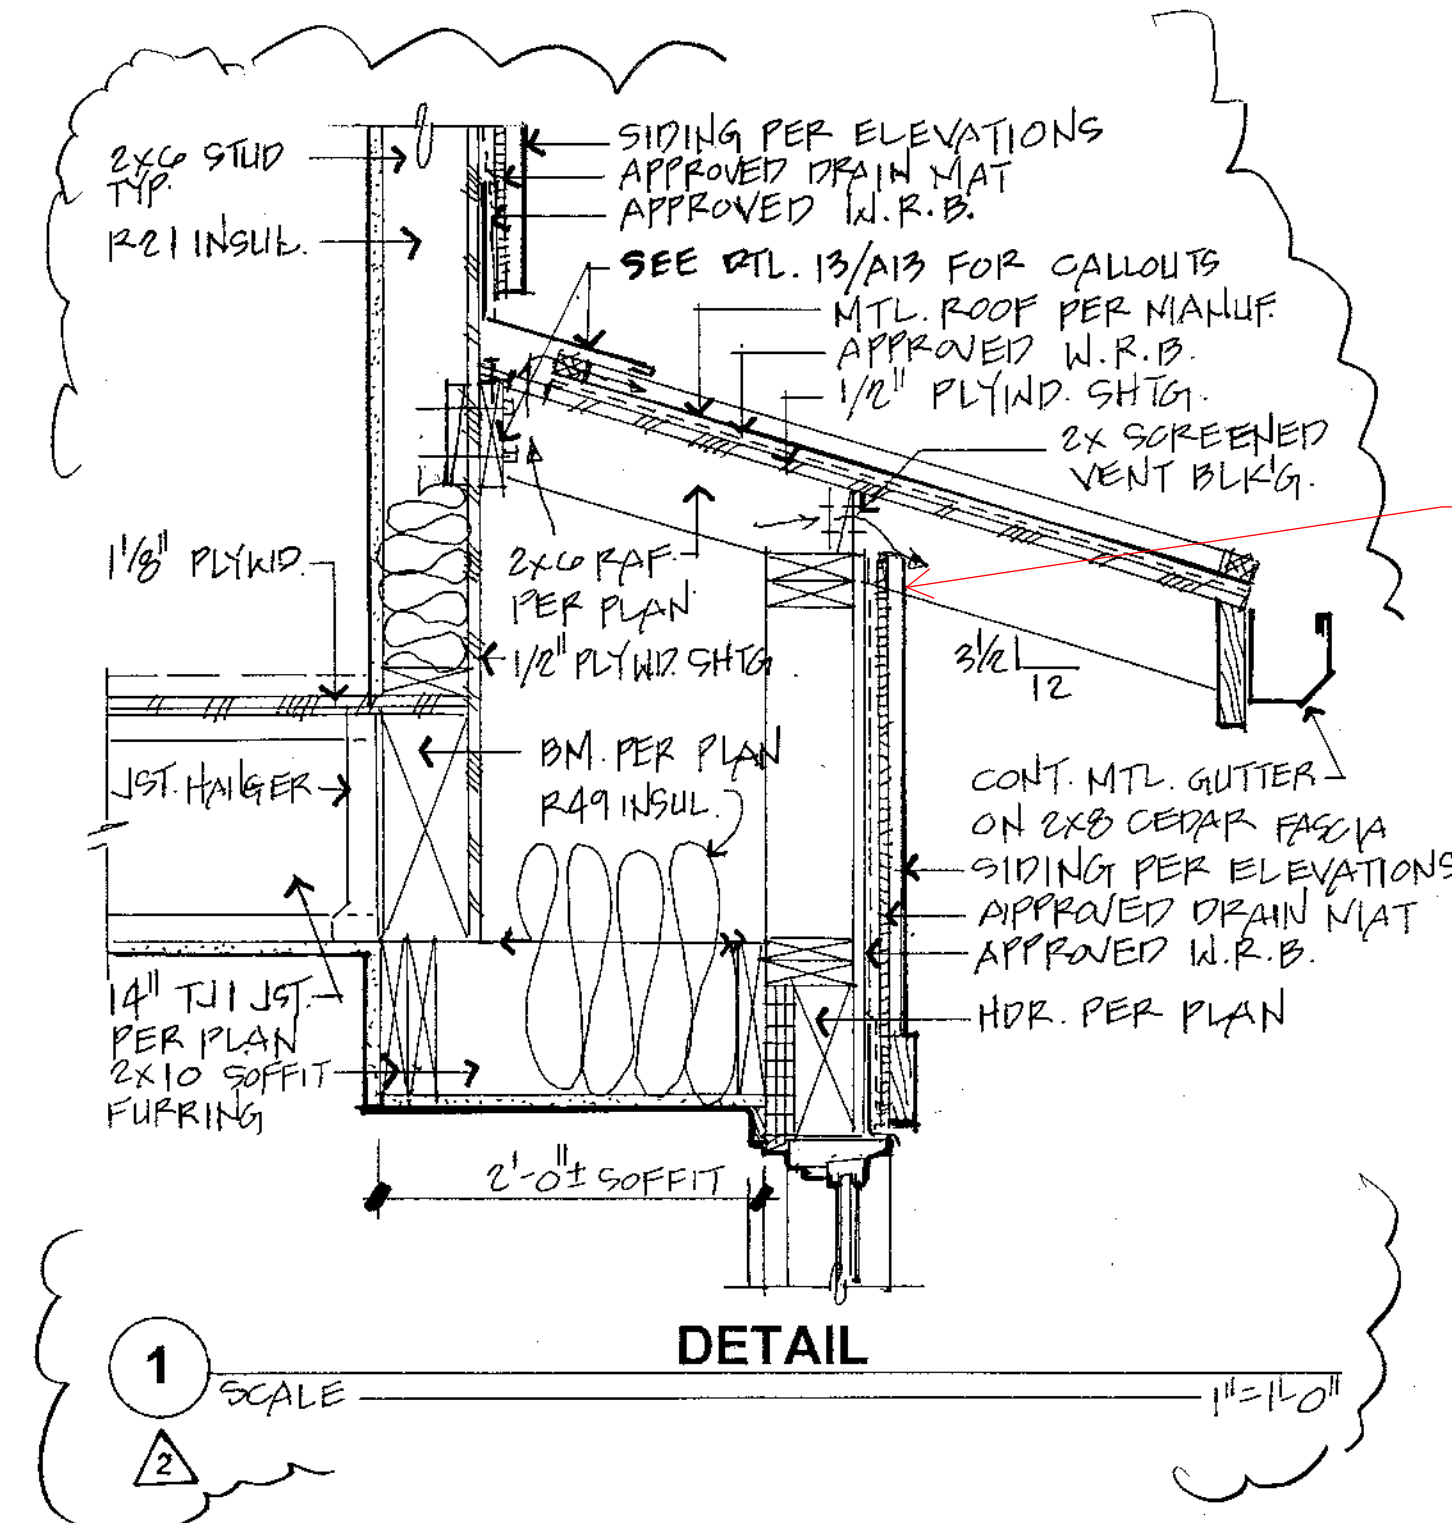 2x6 STUD
TYP.
R21 INSUL.
SIDING PER ELEVATIONS
APPROVED DRAIN MAT
APPROVED W.R.B.
SEE DTL. 13/A13 FOR CALLOUTS
MTL. ROOF PER MANUF.
APPROVED W.R.B.
1/2" PLYWD. SHTG.
2X SCREENED
VENT BLK'G.
1 1/8" PLYWD.
2x6 RAF.
PER PLAN
1/2" PLYWD. SHTG
3 1/2
12
BM. PER PLAN
R49 INSUL.
JST. HANGER
CONT. MTL. GUTTER
ON 2x8 CEDAR FASCIA
SIDING PER ELEVATIONS
APPROVED DRAIN MAT
APPROVED W.R.B.
HDR. PER PLAN
14" TJI JST.
PER PLAN
2x10 SOFFIT
FURRING
2'-0"± SOFFIT
DETAIL
1
SCALE
1"=1'-0"
2